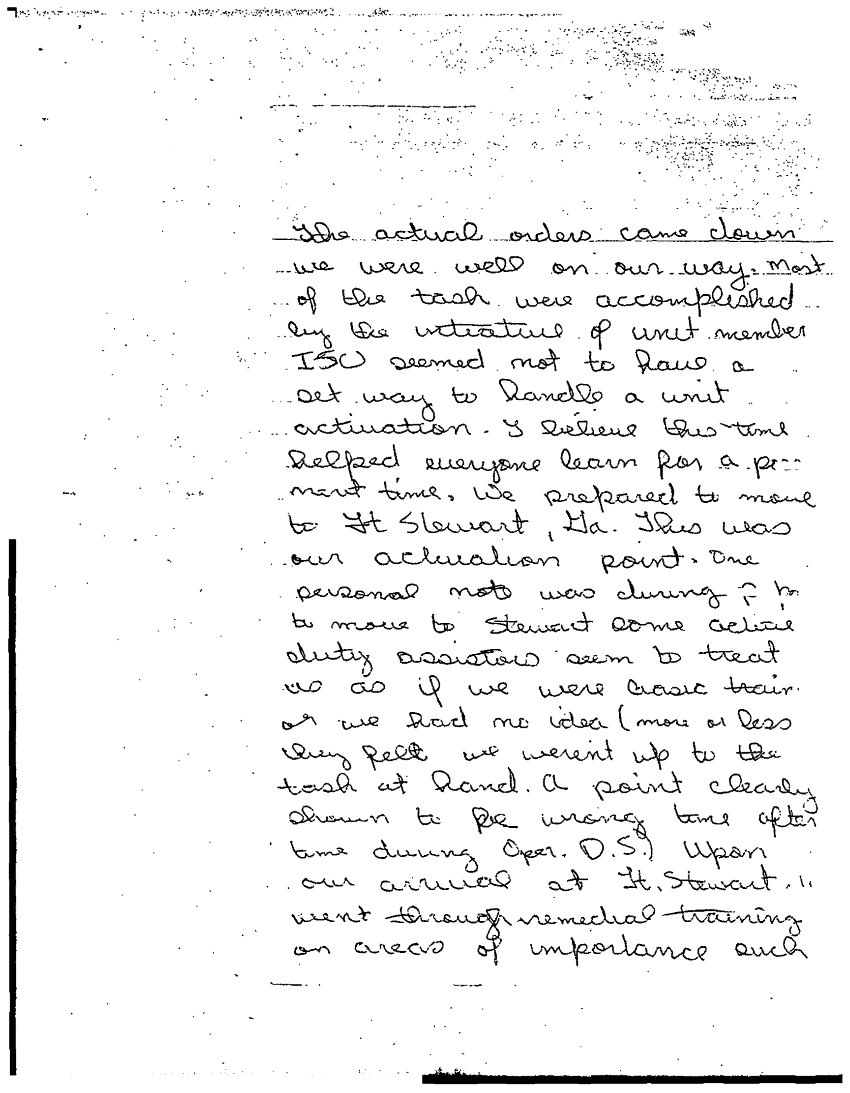 The actual orders came down
we were well on our way. Most
of the task were accomplished
by the intiative of unit member
ISC seemed not to have a
set way to handle a unit
activation. I believe this time
helped everyone learn for a
next time. We prepared to move
to Ft Stewart, Ga. This was
our activation point. One
personal note was during
to move to Stewart some active
duty assistors seem to treat
us as if we were basic train.
or we had no idea (more or less
they felt we werent up to the
task at hand. A point clearly
shown to be wrong time after
time during Oper. D.S.) Upon
our arrival at Ft. Stewart.
went through remedial training
on areas of importance such